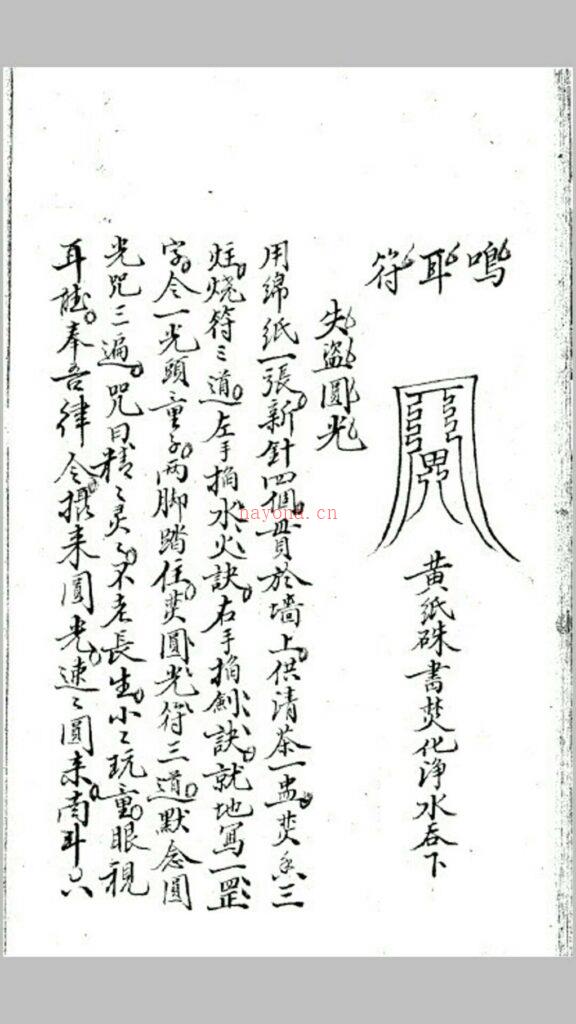 鳴耳符
黄紙硃書焚化淨水吞下
失盜圓光
用綿紙一張新針四個貫於墻上供清茶一盅焚香三
炷燒符三道左手掐水火訣右手掐劍訣就地寫一罡
字令一光頭童子兩脚踏住焚圓光符三道默念圓
光咒三遍咒曰精々灵々不老長生小々玩童眼視
耳聴奉吾律令攝来圓光速々圓来南斗六
nayona.cn